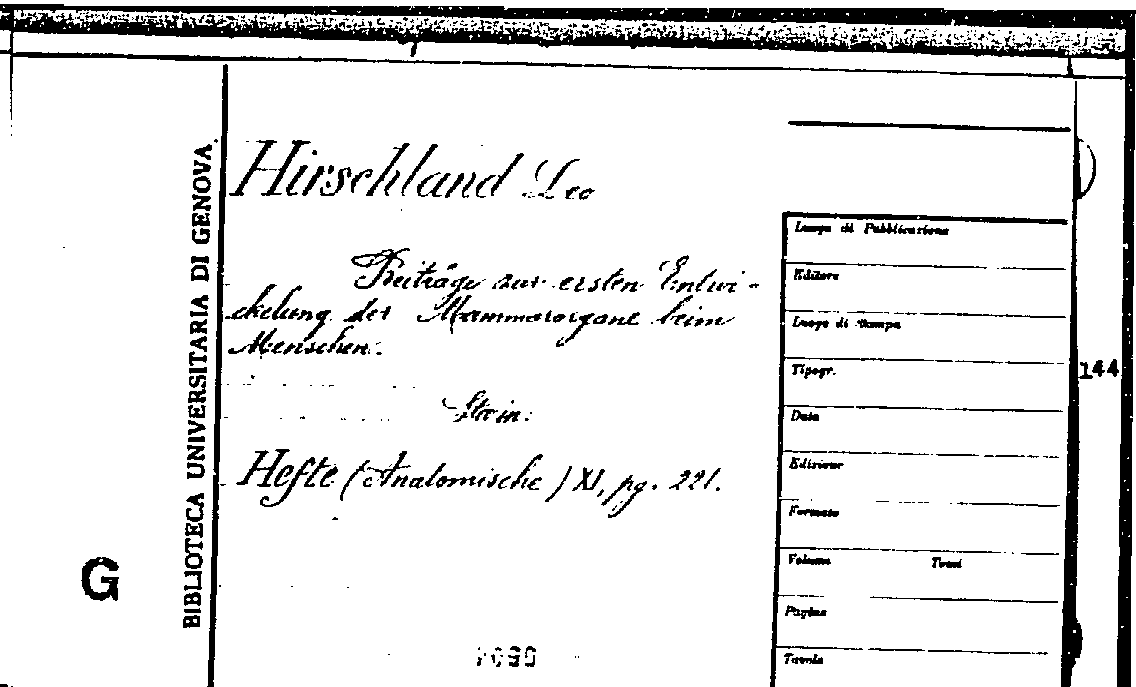 BIBLIOTECA UNIVERSITARIA DI GENOVA
G
Hirschland Leo
Beiträge zur ersten Entwi-
ckelung der Mammarorgane beim
Menschen.
Hefte (Anatomische) XI, pg. 221.
Luogo di Pubblicazione
Editore
Luogo di stampa
Tipogr.
Data
Edizione
Formato
Volume Tomi
Pagine
Tavole
144